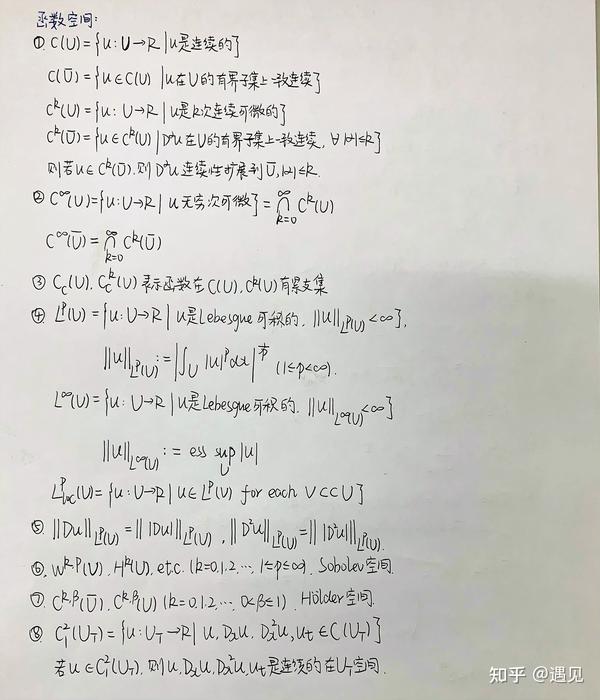 函数空间:
① C(U)={u:U→R|u是连续的}
C(Ū)={u∈C(U)|u在U的有界子集上一致连续}
Cᵏ(U)={u:U→R|u是k次连续可微的}
Cᵏ(Ū)={u∈Cᵏ(U)|Dᵅu在U的有界子集上一致连续, ∀|α|≤k}
则若u∈Cᵏ(Ū).则Dᵅu连续性扩展到Ū,|α|≤k.
② C^∞(U)={u:U→R|u无穷次可微}=∩_{k=0}^∞ Cᵏ(U)
C^∞(Ū)=∩_{k=0}^∞ Cᵏ(Ū)
③ C_c(U).C_c^k(U)表示函数在C(U),Cᵏ(U)有紧支集
④ L^p(U)={u:U→R|u是Lebesgue可积的.||u||_{L^p(U)}<∞},
||u||_{L^p(U)}:=|∫_U |u|^p dx|^{1/p} (1≤p<∞).
L^∞(U)={u:U→R|u是Lebesgue可积的.||u||_{L^∞(U)}<∞}
||u||_{L^∞(U)}:=ess sup_U |u|
L^p_{loc}(U)={u:U→R|u∈L^p(V) for each V⊂⊂U}
⑤ ||Du||_{L^p(U)}=|| |Du| ||_{L^p(U)}, ||D²u||_{L^p(U)}=|| |D²u| ||_{L^p(U)}.
⑥ W^{k,p}(U).H^k(U).etc.(k=0.1.2.…, 1≤p≤∞). Sobolev空间.
⑦ C^{k,β}(Ū).C^{k,β}(U)(k=0.1.2.…, 0<β≤1). Hölder空间.
⑧ C_1^2(U_T)={u:U_T→R|u,D_xu,D_x^2u,u_t∈C(U_T)}
若u∈C_1^2(U_T),则u,D_xu,D_x^2u,u_t是连续的在U_T空间.
知乎 @遇见